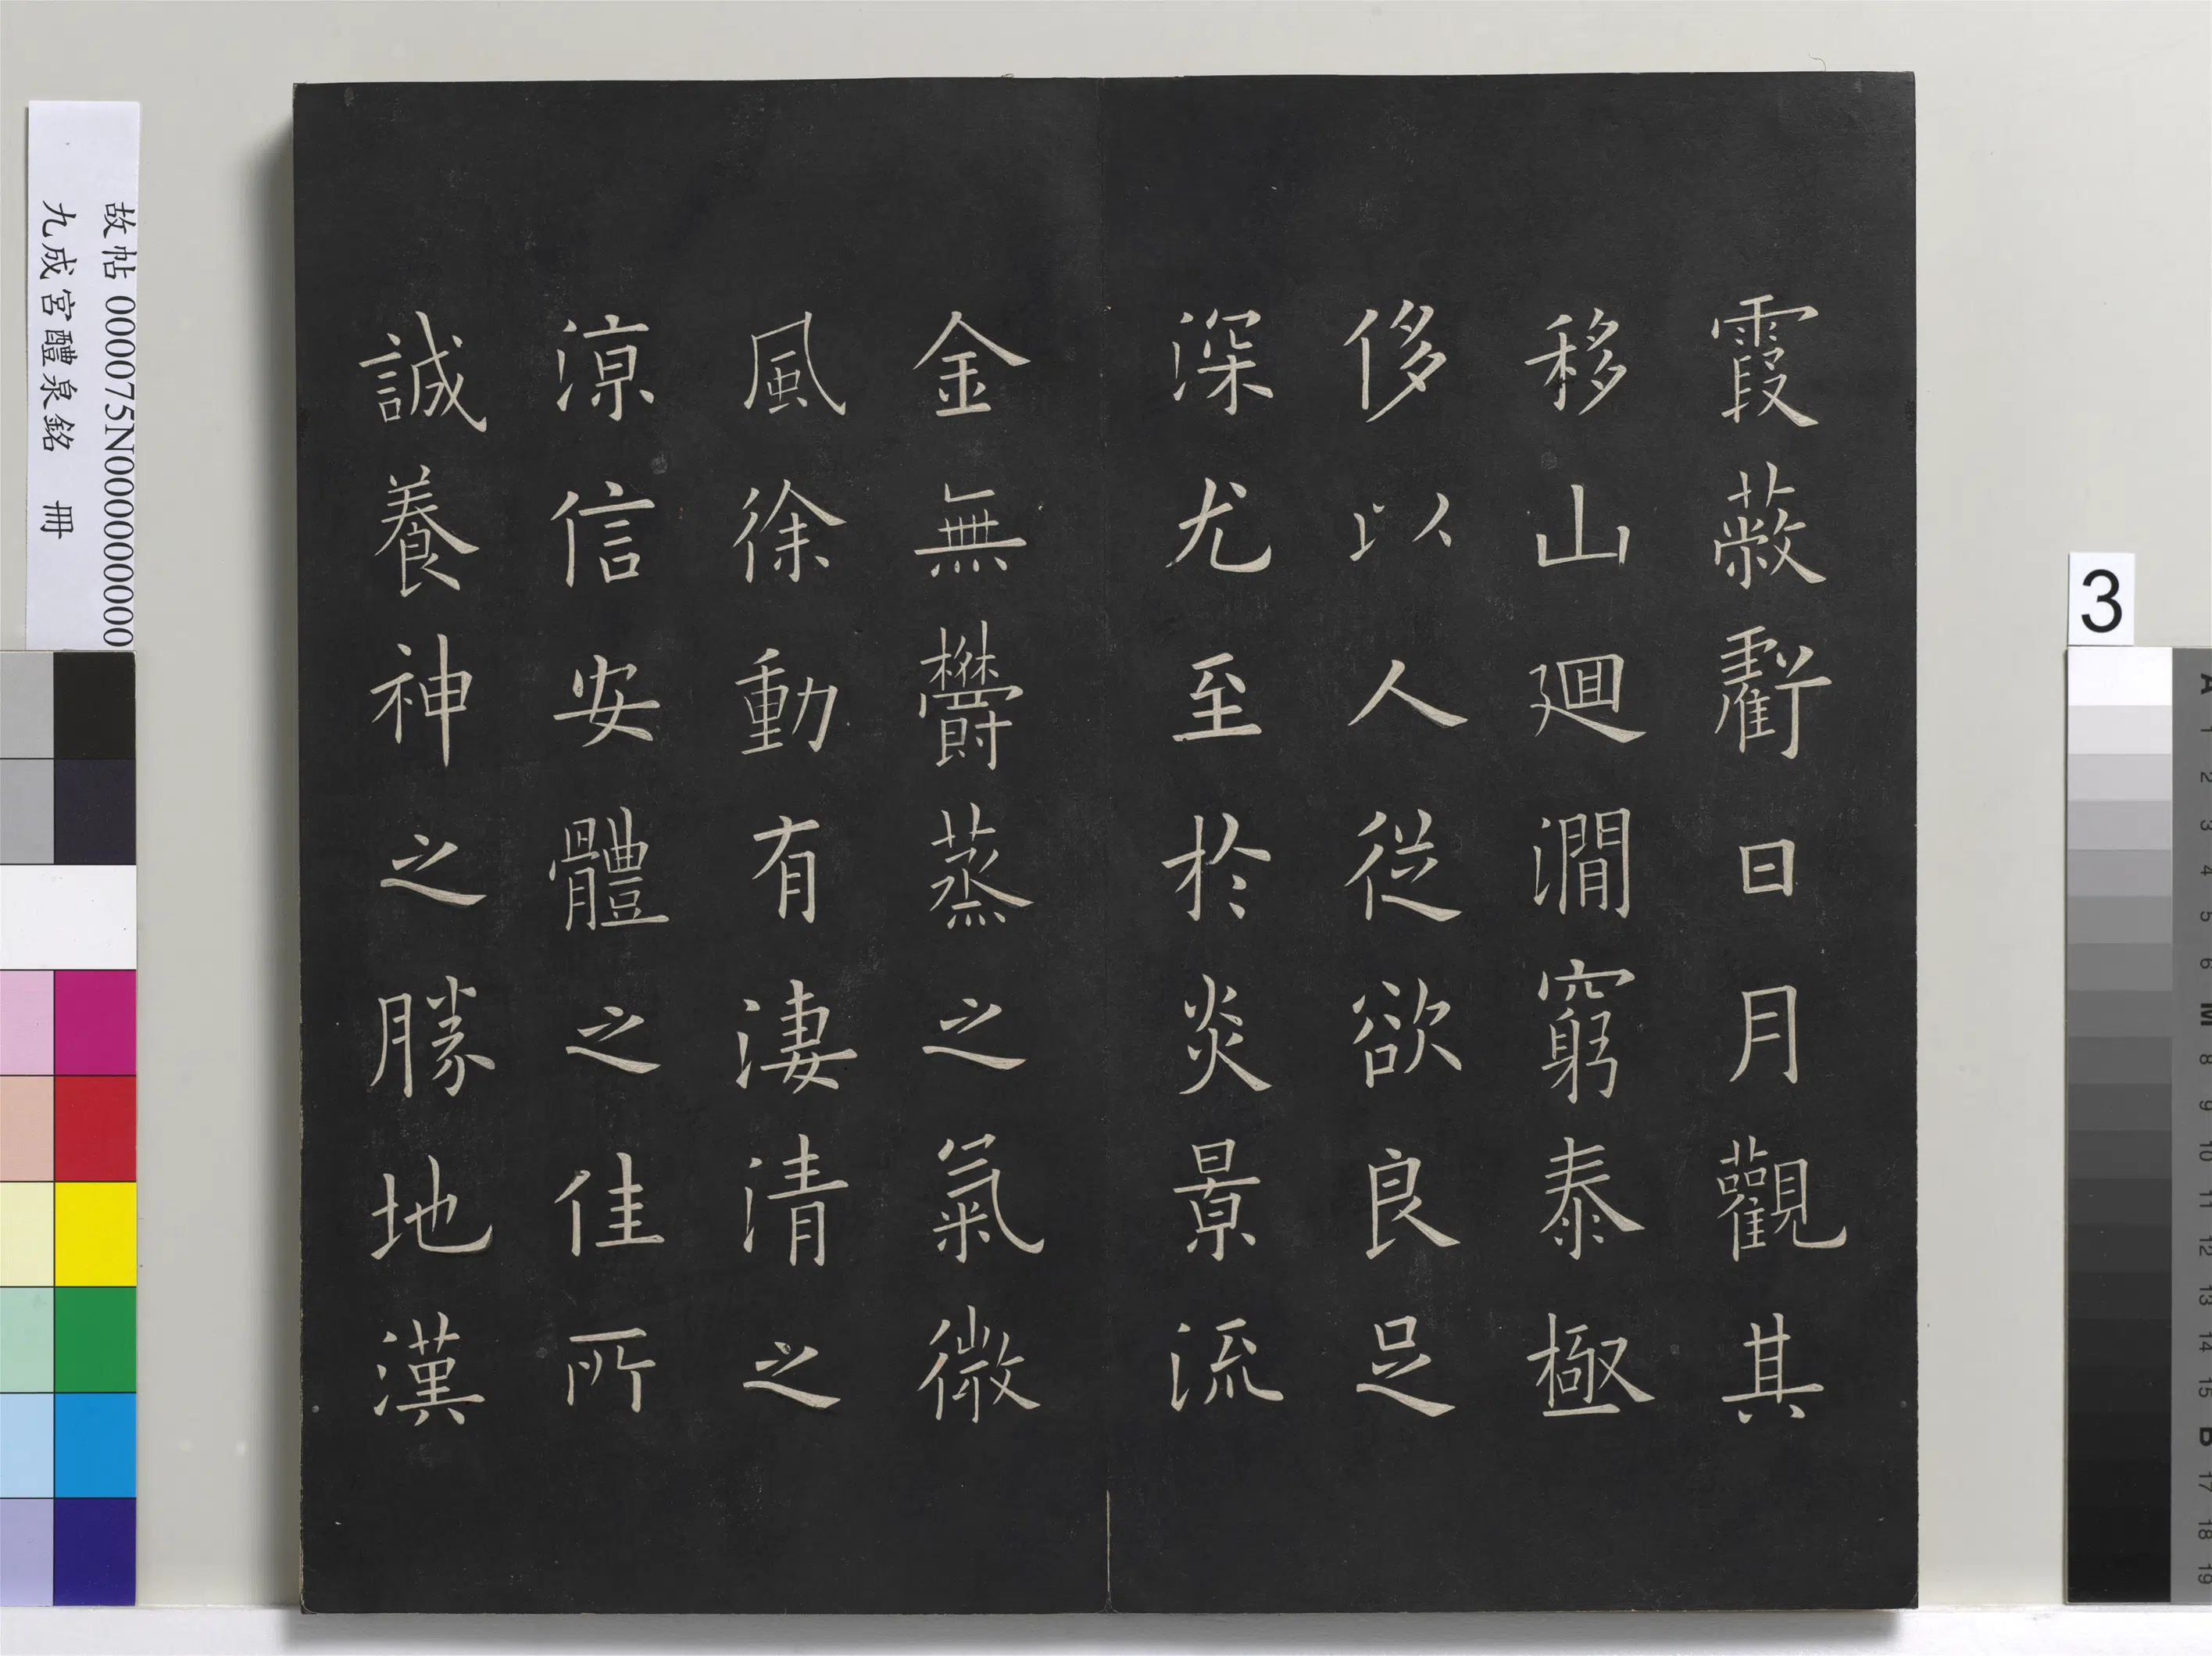 霞蔽虧日月觀其
移山廻澗窮泰極
侈以人從欲良足
深尤至於炎景流
金無鬱蒸之氣微
風徐動有淒清之
涼信安體之佳所
誠養神之勝地漢
故帖 000075N000000000
九成宮醴泉銘 冊
3
A 1 2 3 4 5 6 M 8 9 10 11 12 13 14 15 B 17 18 19